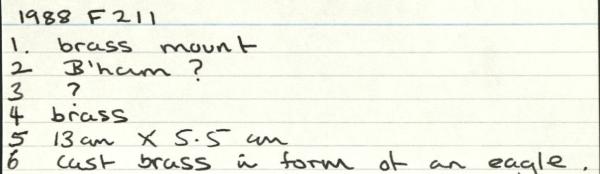 1988 F 211
1. brass mount
2 B'ham ?
3 ?
4 brass
5 13cm X 5.5 cm
6 cast brass in form of an eagle.